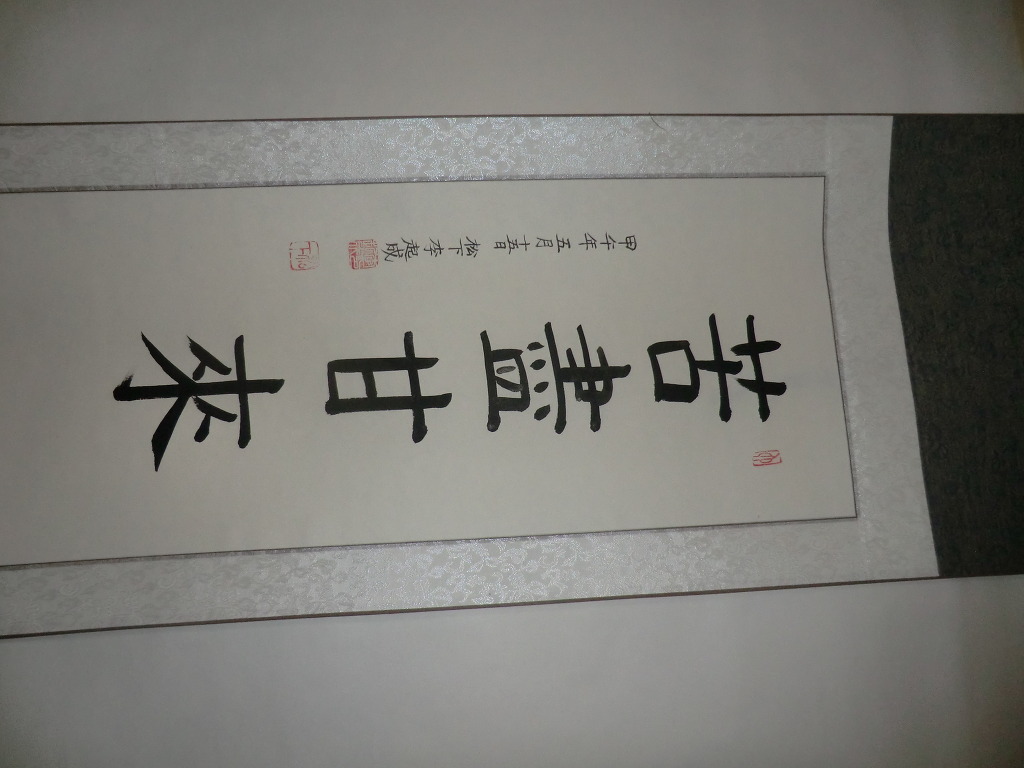 苦盡甘來
甲午年五月十五日松下李起成